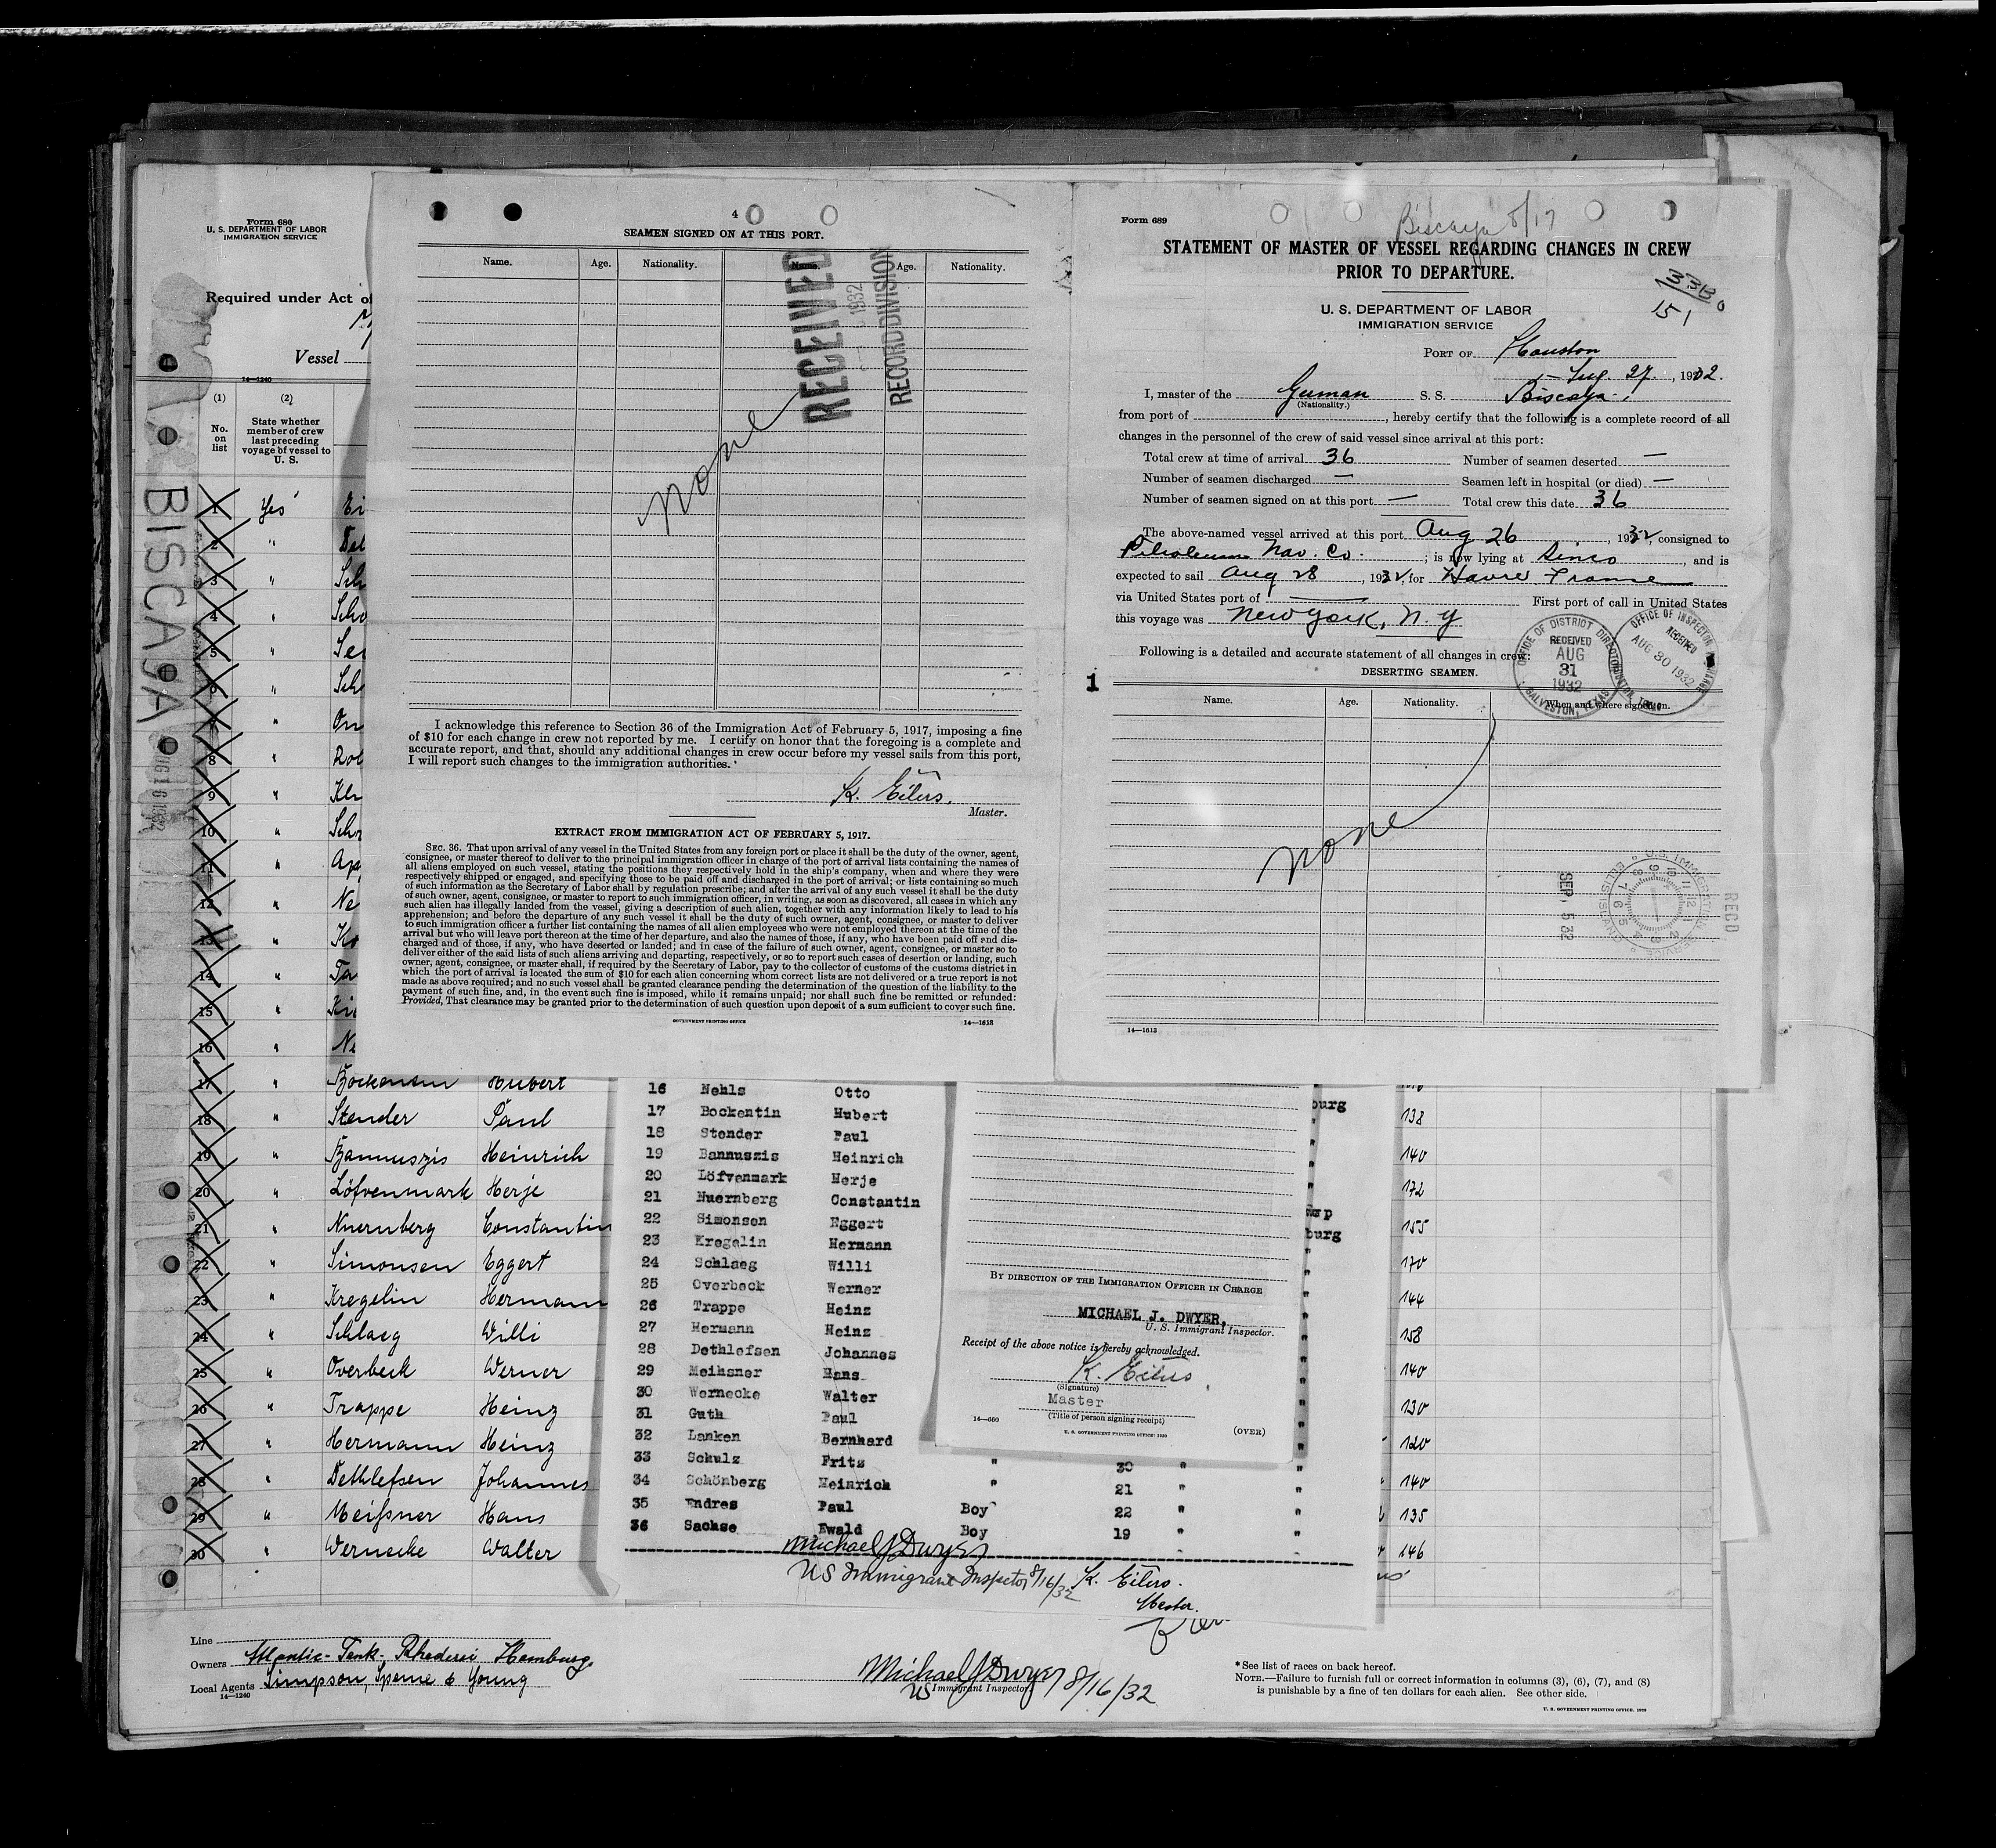 Form 680
U. S. DEPARTMENT OF LABOR
IMMIGRATION SERVICE
Required under Act of
Vessel
14—1240
(1)
No.
on
list
(2)
State whether
member of crew
last preceding
voyage of vessel to
U. S.
BISCAYA
AUG 16 1932
1 Yes Ei
2 "
3 " Sch
4 " Scho
5 "
6 " Sch
7 "
8 "
9 "
10 "
11 " Ap
12 " Ne
13 " Ko
14 " Ta
15 "
16 " Ne
17 " Bockentin Hubert
18 " Stender Paul
19 " Bannuszis Heinrich
20 " Löfvenmark Herje
21 " Nuernberg Constantin
22 " Simonsen Eggert
23 " Kregelin Hermann
24 " Schlaeg Willi
25 " Overbeck Werner
26 " Trappe Heinz
27 " Hermann Heinz
28 " Dethlefsen Johannes
29 " Meißner Hans
30 " Wernecke Walter
Line
Owners Atlantic-Tank-Rhederei Hamburg
Local Agents Simpson, Spence & Young
14—1240
4
SEAMEN SIGNED ON AT THIS PORT.
Name. Age. Nationality. Name. Age. Nationality.
RECEIVED
1932
RECORD DIVISION
none
I acknowledge this reference to Section 36 of the Immigration Act of February 5, 1917, imposing a fine
of $10 for each change in crew not reported by me. I certify on honor that the foregoing is a complete and
accurate report, and that, should any additional changes in crew occur before my vessel sails from this port,
I will report such changes to the immigration authorities.
K. Eilers.
Master.
EXTRACT FROM IMMIGRATION ACT OF FEBRUARY 5, 1917.
SEC. 36. That upon arrival of any vessel in the United States from any foreign port or place it shall be the duty of the owner, agent,
consignee, or master thereof to deliver to the principal immigration officer in charge of the port of arrival lists containing the names of
all aliens employed on such vessel, stating the positions they respectively hold in the ship's company, when and where they were
respectively shipped or engaged, and specifying those to be paid off and discharged in the port of arrival; or lists containing so much
of such information as the Secretary of Labor shall by regulation prescribe; and after the arrival of any such vessel it shall be the duty
of such owner, agent, consignee, or master to report to such immigration officer, in writing, as soon as discovered, all cases in which any
such alien has illegally landed from the vessel, giving a description of such alien, together with any information likely to lead to his
apprehension; and before the departure of any such vessel it shall be the duty of such owner, agent, consignee, or master to deliver
to such immigration officer a further list containing the names of all alien employees who were not employed thereon at the time of the
arrival but who will leave port thereon at the time of her departure, and also the names of those, if any, who have been paid off and dis-
charged and of those, if any, who have deserted or landed; and in case of the failure of such owner, agent, consignee, or master so to
deliver either of the said lists of such aliens arriving and departing, respectively, or so to report such cases of desertion or landing, such
owner, agent, consignee, or master shall, if required by the Secretary of Labor, pay to the collector of customs of the customs district in
which the port of arrival is located the sum of $10 for each alien concerning whom correct lists are not delivered or a true report is not
made as above required; and no such vessel shall be granted clearance pending the determination of the question of the liability to the
payment of such fine, and, in the event such fine is imposed, while it remains unpaid; nor shall such fine be remitted or refunded:
Provided, That clearance may be granted prior to the determination of such question upon deposit of a sum sufficient to cover such fine.
GOVERNMENT PRINTING OFFICE 14—1613
Form 689
Biscaya 8/17
STATEMENT OF MASTER OF VESSEL REGARDING CHANGES IN CREW
PRIOR TO DEPARTURE.
151
U. S. DEPARTMENT OF LABOR
IMMIGRATION SERVICE
PORT OF Houston
Aug. 27., 1932.
I, master of the German S. S. Biscaya
(Nationality.)
from port of , hereby certify that the following is a complete record of all
changes in the personnel of the crew of said vessel since arrival at this port:
Total crew at time of arrival 36 Number of seamen deserted —
Number of seamen discharged — Seamen left in hospital (or died) —
Number of seamen signed on at this port — Total crew this date 36
The above-named vessel arrived at this port Aug 26, 1932, consigned to
Petroleum Nav. Co. ; is now lying at Sinco, and is
expected to sail Aug 28, 1932, for Havre France
via United States port of — First port of call in United States
this voyage was New York, N. Y
Following is a detailed and accurate statement of all changes in crew:
OFFICE OF DISTRICT DIRECTOR
RECEIVED
AUG
31
1932
GALVESTON, TEXAS
OFFICE OF INSPECTOR IN CHARGE
RECEIVED
AUG 30 1932
HOUSTON, TEXAS
1
DESERTING SEAMEN.
Name. Age. Nationality. When and where signed on.
none
SEP. 5 32
U. S. IMMIGRATION SERVICE
REC'D
14—1613
16 Nehls Otto
17 Bockentin Hubert
18 Stender Paul
19 Bannuszis Heinrich
20 Löfvenmark Herje
21 Nuernberg Constantin
22 Simonsen Eggert
23 Kregelin Hermann
24 Schlaeg Willi
25 Overbeck Werner
26 Trappe Heinz
27 Hermann Heinz
28 Dethlefsen Johannes
29 Meihsner Hans
30 Wernecke Walter
31 Guth Paul
32 Lanken Bernhard
33 Schulz Fritz " 30 " "
34 Schönberg Heinrich " 21 " "
35 Endres Paul Boy 22 " "
36 Sachse Ewald Boy 19 " "
Michael J Dwyer
US Immigrant Inspector 8/16/32
K. Eilers.
Master.
burg
burg
BY DIRECTION OF THE IMMIGRATION OFFICER IN CHARGE
MICHAEL J. DWYER,
U. S. Immigrant Inspector.
Receipt of the above notice is hereby acknowledged.
K. Eilers
(Signature)
Master
(Title of person signing receipt)
14—680
U. S. GOVERNMENT PRINTING OFFICE: 1930
(OVER)
138
140
172
155
170
144
158
140
130
120
140
135
146
Michael J Dwyer 8/16/32
US Immigrant Inspector
*See list of races on back hereof.
NOTE.—Failure to furnish full or correct information in columns (3), (6), (7), and (8)
is punishable by a fine of ten dollars for each alien. See other side.
U. S. GOVERNMENT PRINTING OFFICE. 1929